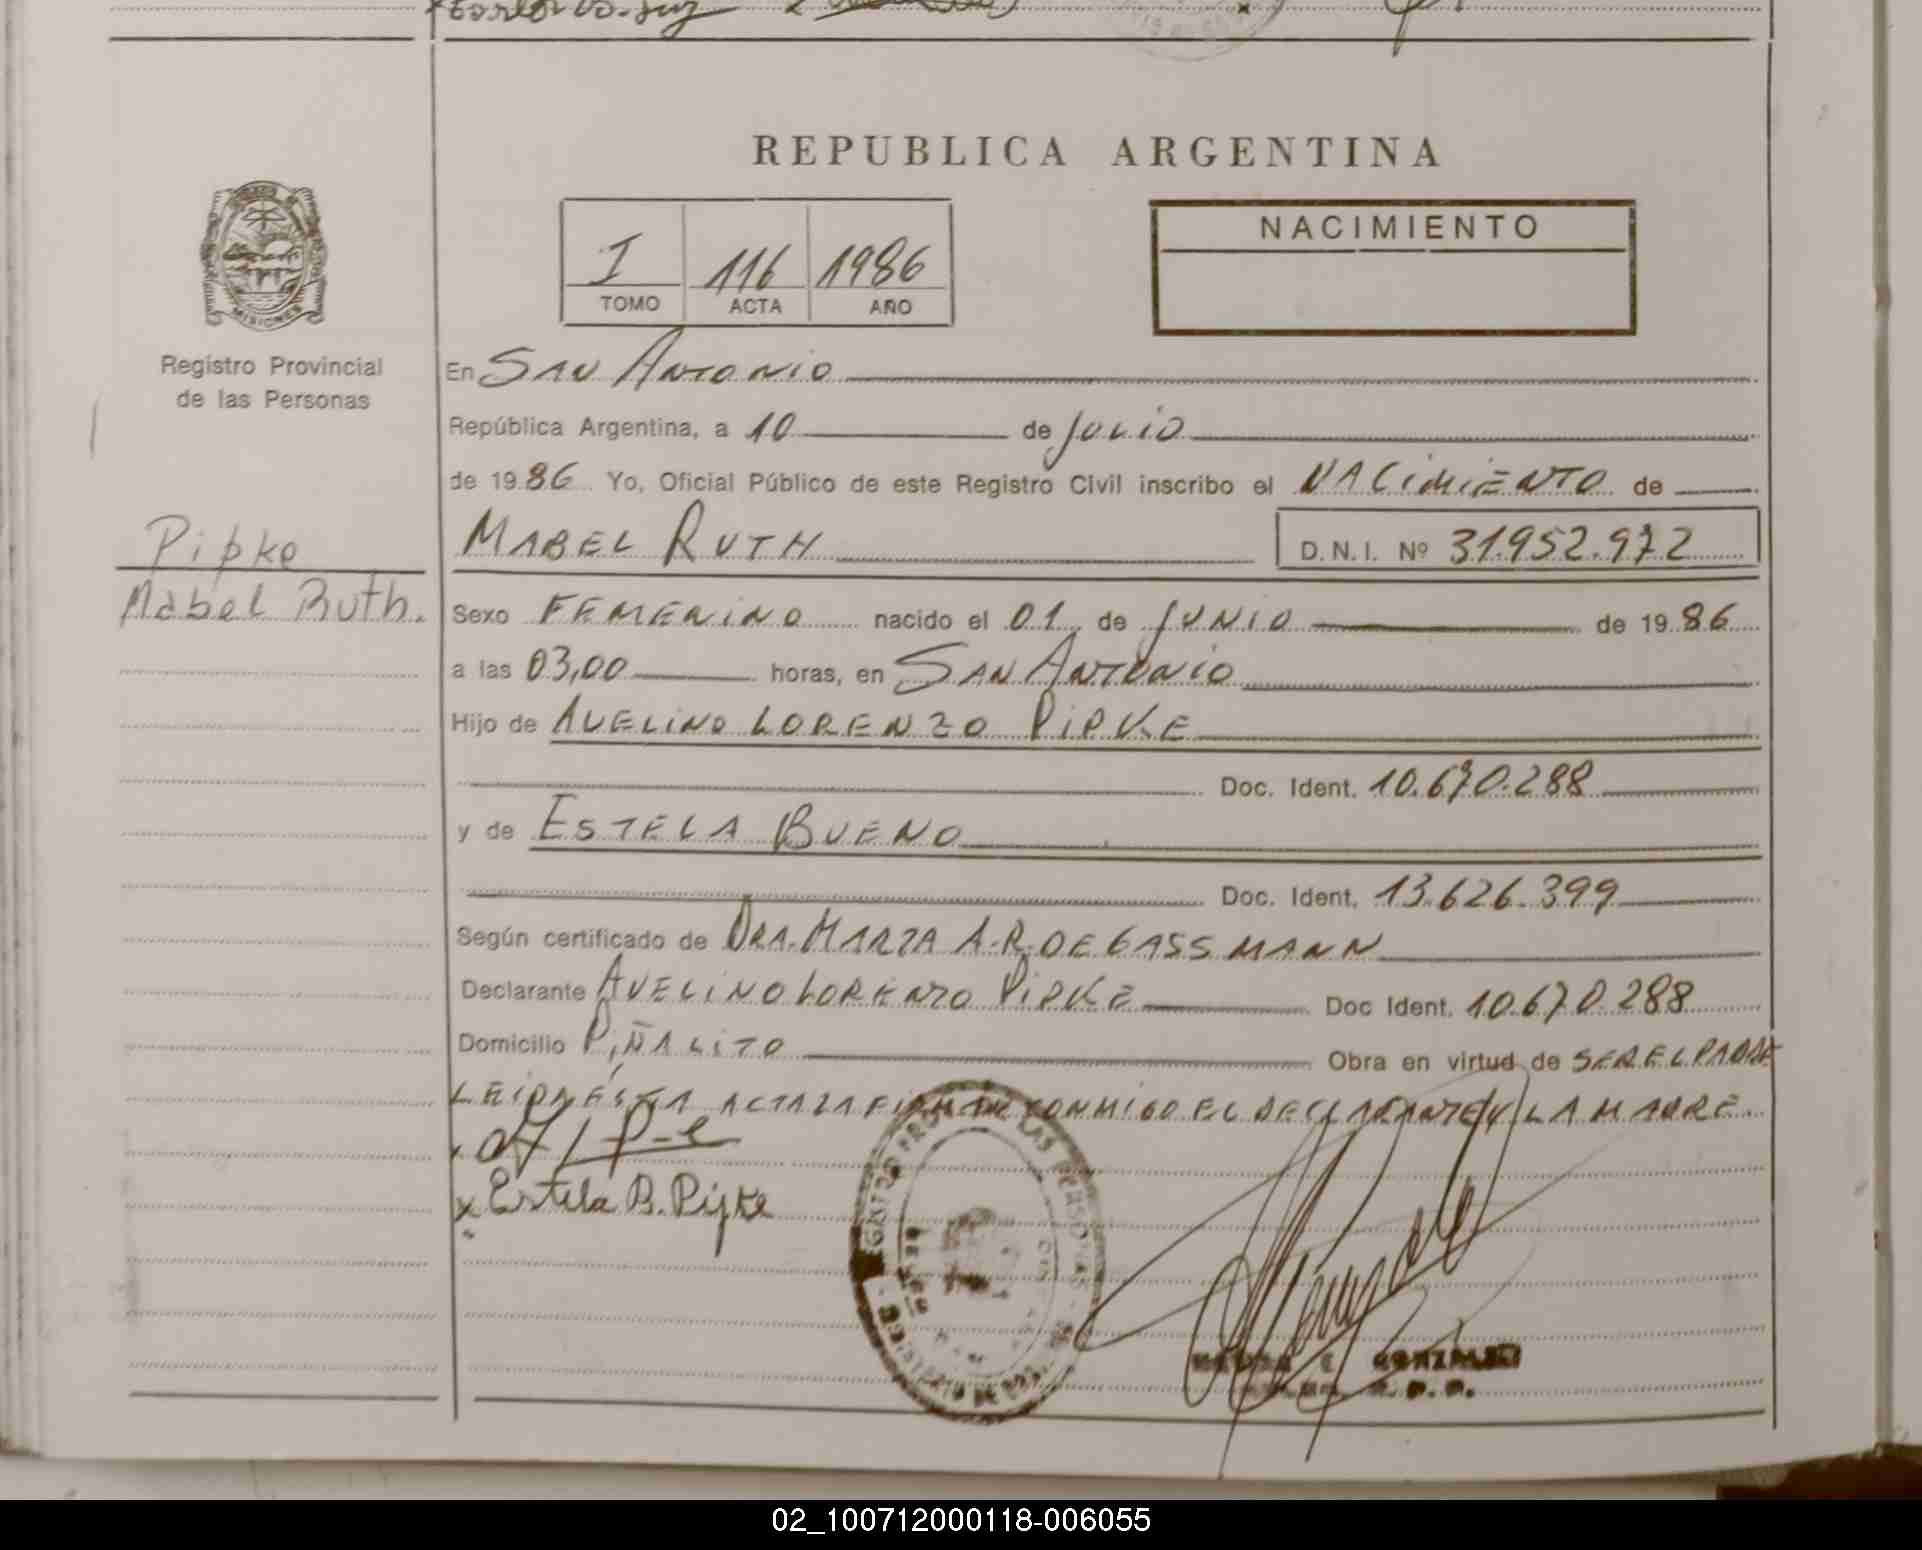 REPUBLICA ARGENTINA
MISIONES
Registro Provincial
de las Personas
I 116 1986
TOMO ACTA AÑO
NACIMIENTO
En SAN ANTONIO
República Argentina, a 10 de JULIO
de 1986 Yo, Oficial Público de este Registro Civil inscribo el NACIMIENTO de
Pipke
Mabel Ruth.
MABEL RUTH D.N.I. Nº 31.952.972
Sexo FEMENINO nacido el 01 de JUNIO de 1986
a las 03,00 horas, en SAN ANTONIO
Hijo de AVELINO LORENZO PIPKE
Doc. Ident. 10.670.288
y de ESTELA BUENO
Doc. Ident. 13.626.399
Según certificado de DRA. MARTA A.R. DE GASSMANN
Declarante AVELINO LORENZO PIPKE Doc Ident. 10.670.288
Domicilio PIÑALITO Obra en virtud de SER EL PADRE
LEIDA ÉSTA ACTA LA FIRMAN CONMIGO EL DECLARANTE Y LA MADRE.
x Estela B. Pipke
GONZALEZ
02_100712000118-006055